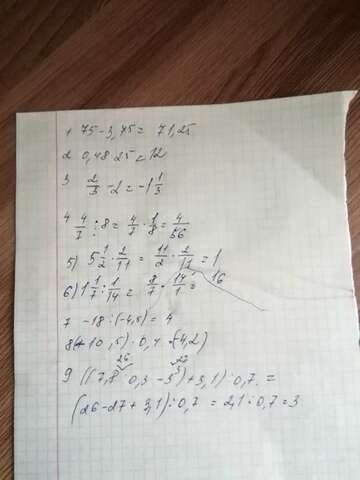 1 75-3,75= 71,25
2 0,48 25=12
3 2/3 -2=-1 1/3
4 4/7 :8= 4/7 · 1/8= 4/56
5) 5 1/2 · 2/11= 11/2 · 2/11=1
6) 1 1/7 : 1/14= 8/7 · 14/1= 16
7 -18:(-4,5)=4
8(+10,5)·0,4·(4,2)
26 27
9 ((7,8:0,3-3³)+3,1):0,7=
(26-27+3,1):0,7=2,1:0,7=3